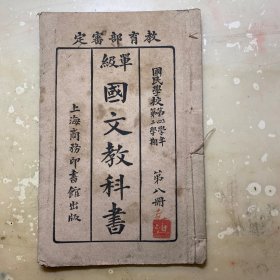 教育部審定
國民學校第四學年第二學期
單級
國文教科書
第八冊
上海商務印書館出版